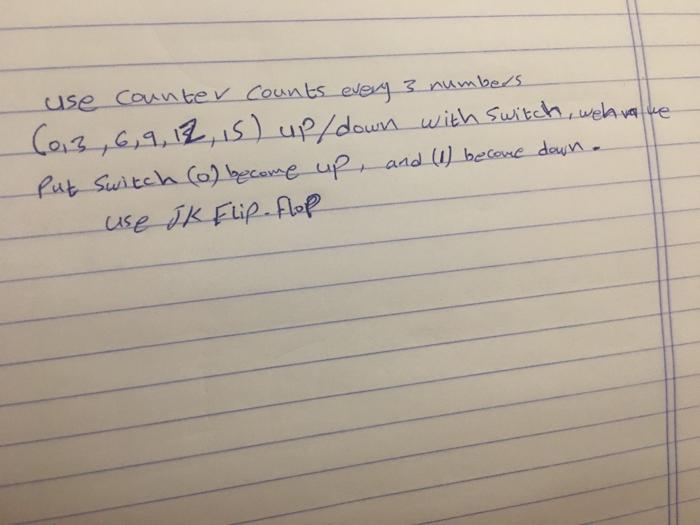 use counter counts every 3 numbers
(0,3,6,9,12,15) up/down with switch, we
Put switch (0) become up, and (1) become down.
use JK Flip-flop